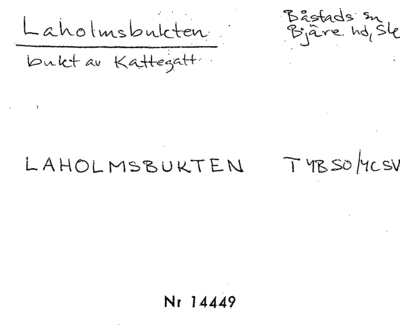 Laholmsbukten
bukt av Kattegatt
Båstads sn
Bjäre hd, Ske
LAHOLMSBUKTEN T4BSO/4CSV
Nr 14449